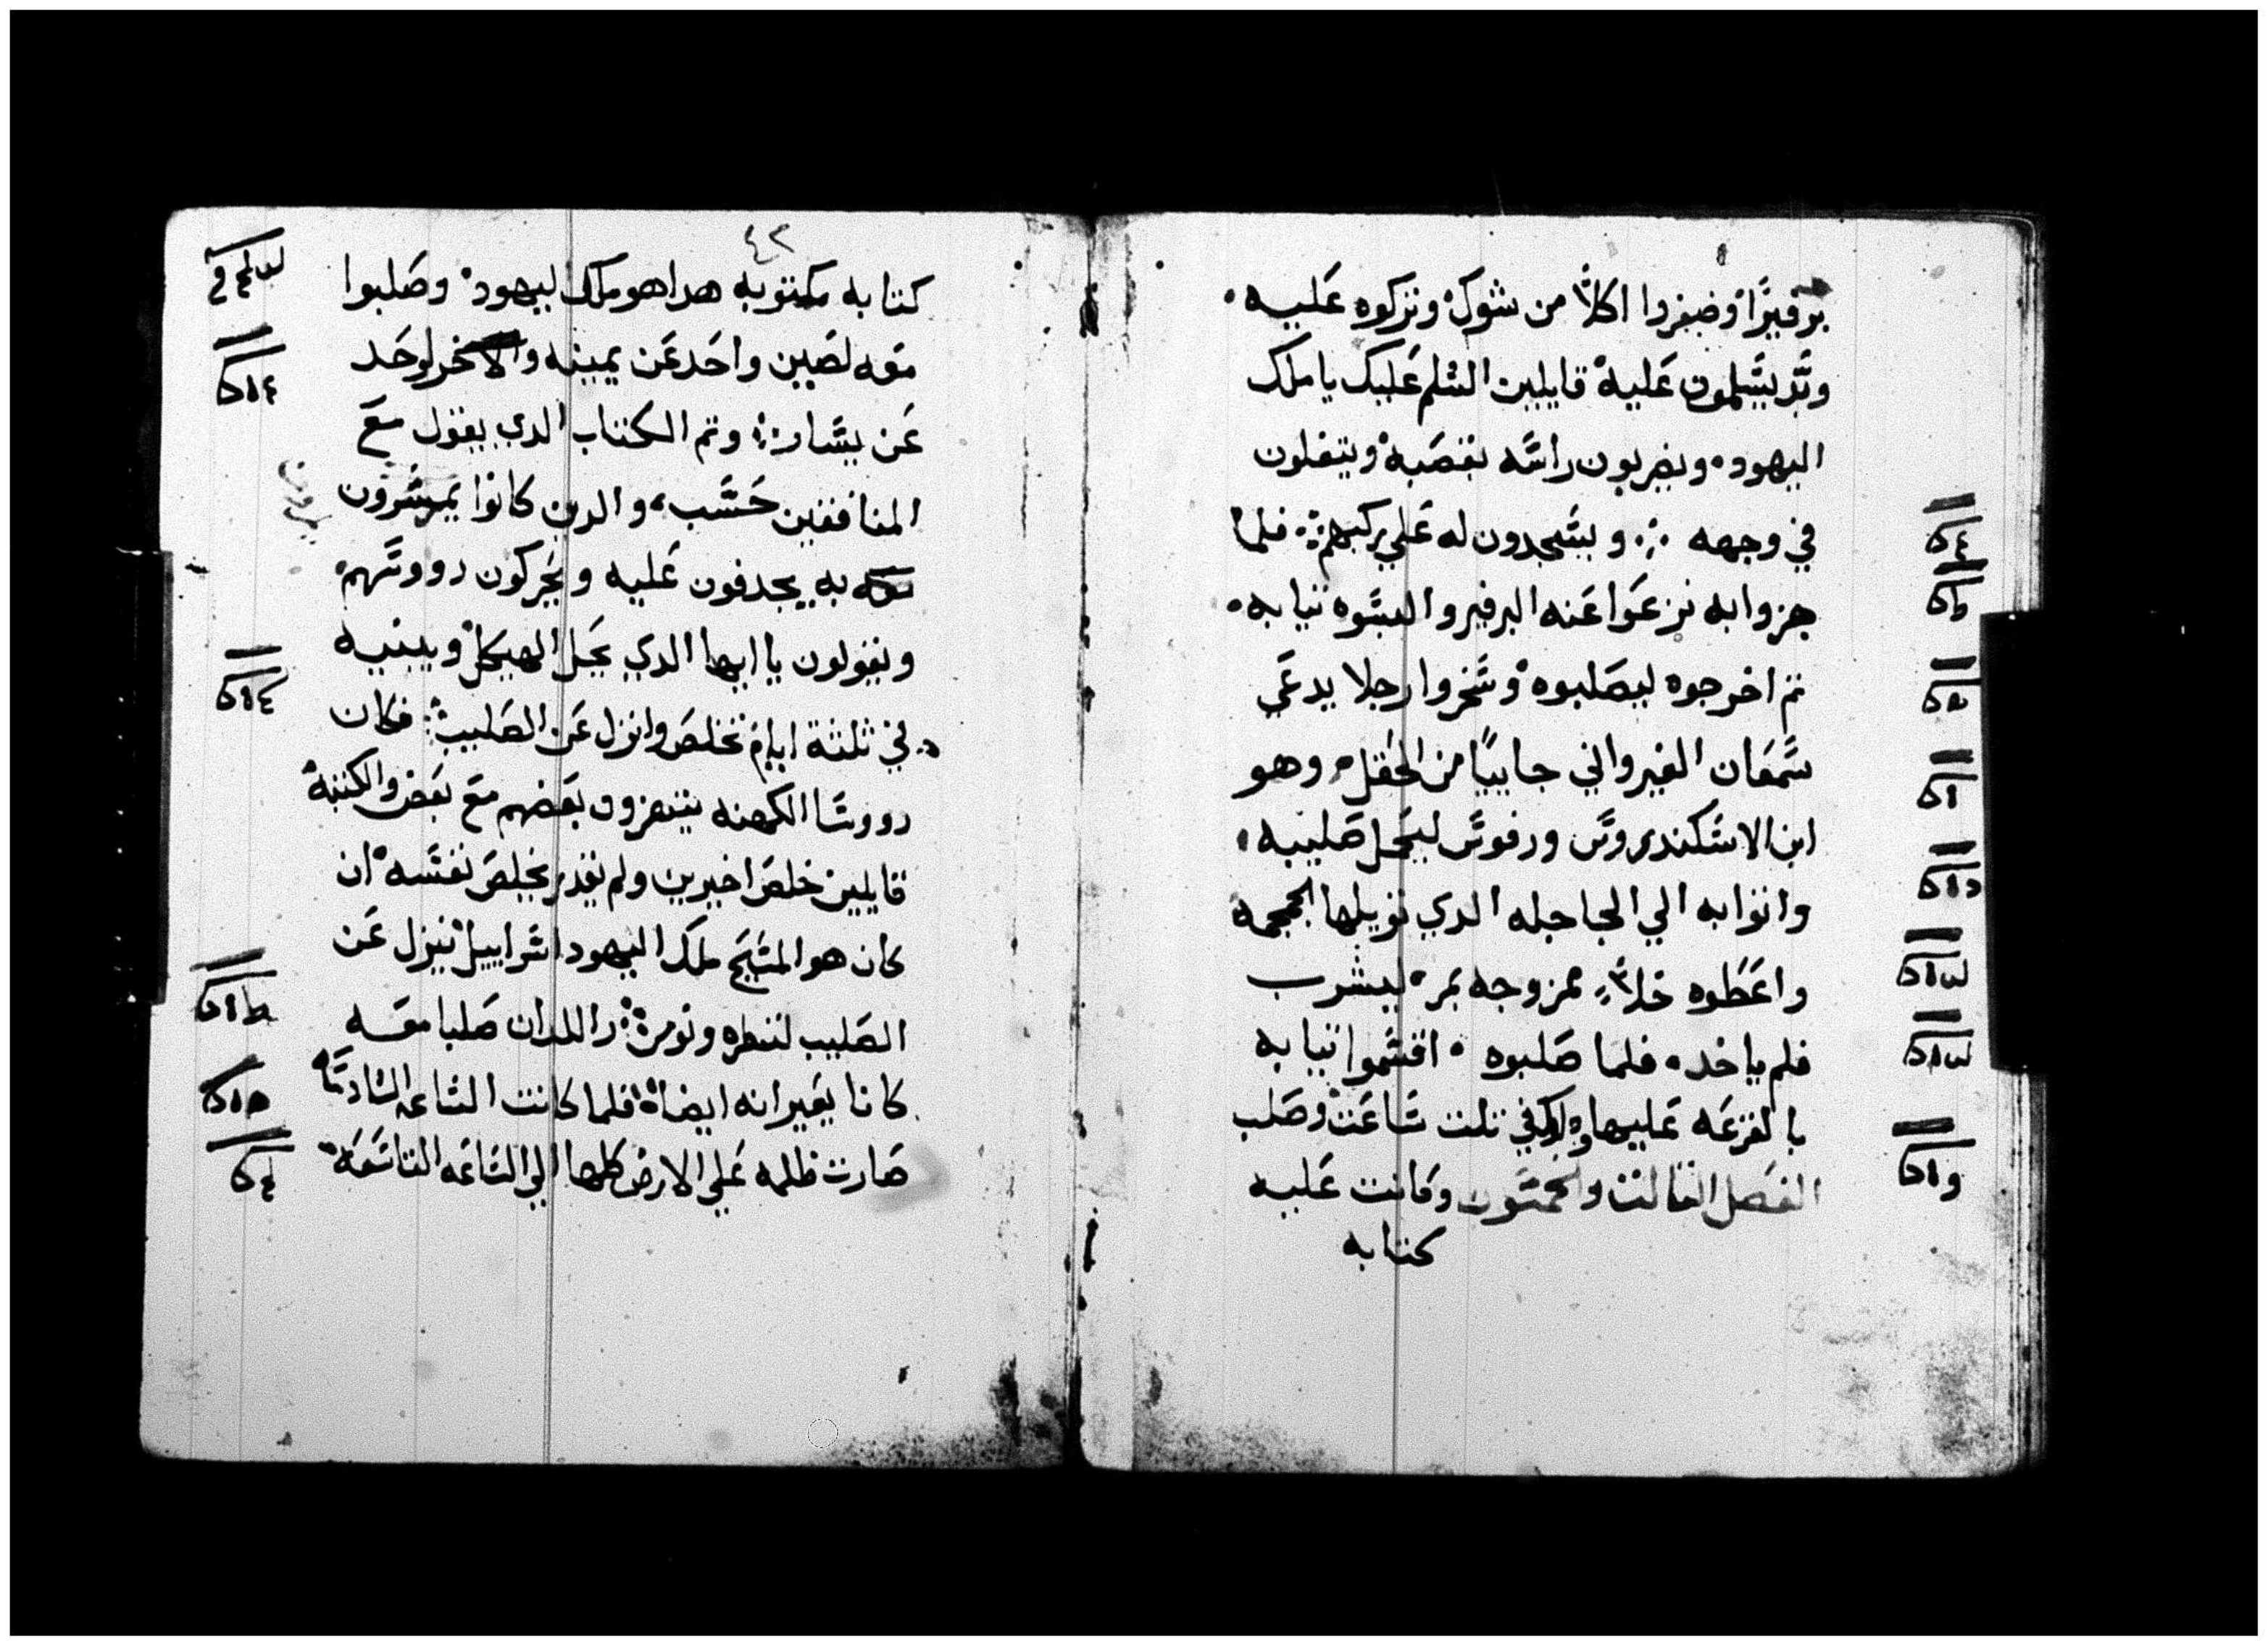 برفيرًا وضفروا اكلاًّ من شوك وتركوه عليه
يسلمون عليه قايلين السلم عليك يا ملك
اليهود ويضربون راسه بقصبه ويتفلون
في وجهه ويسجدون له علي ركبهم فلما
هزوا به نزعوا عنه البرفير والبسوه تيابه
تم اخرجوه ليصلبوه وسخروا رجلا يدعي
سمعان القيرواني جاييًا من الحقل وهو
ابن الاسكندروس ورفوس ليحمل صليبه
واتوا به الي الجاجله الدي تويلها الجمجمه
واعطوه خلاً ممزوجه بمر ليشرب
فلم ياخد فلما صلبوه اقتسموا تيابه
بالقرعه عليها في تلت ساعت وصلب
الفصل التالت والخمسون وكانت عليه
كتابه
٤٢
كتابه مكتوبه هدا هو ملك ليهود وصلبوا
معه لصين واحد عن يمينه والاخر لوحد
عن يسار وتم الكتاب الدي يقول مع
المنافقين حسب والدين كانوا يمرسرون
يمرون
به يجدفون عليه ويحركون رووسهم
ويقولون يا ايها الدي يحل الهيكل ويبنيه
في ثلثة ايام تخلص وانزل عن الصليب فكان
رووسا الكهنه يتهزون بعضهم مع بعض والكتبة
قايلين خلص اخيرين ولم يقدر يخلص نفسه ان
كان هو المسيح ملك اليهود اسراييل ينزل عن
الصليب لننظره ونومن واللدان صلبا معه
كانا يعيرانه ايضاً فلما كانت الساعه السادسا
صارت ظلمه علي الارض كلها الي الساعه التاسعه